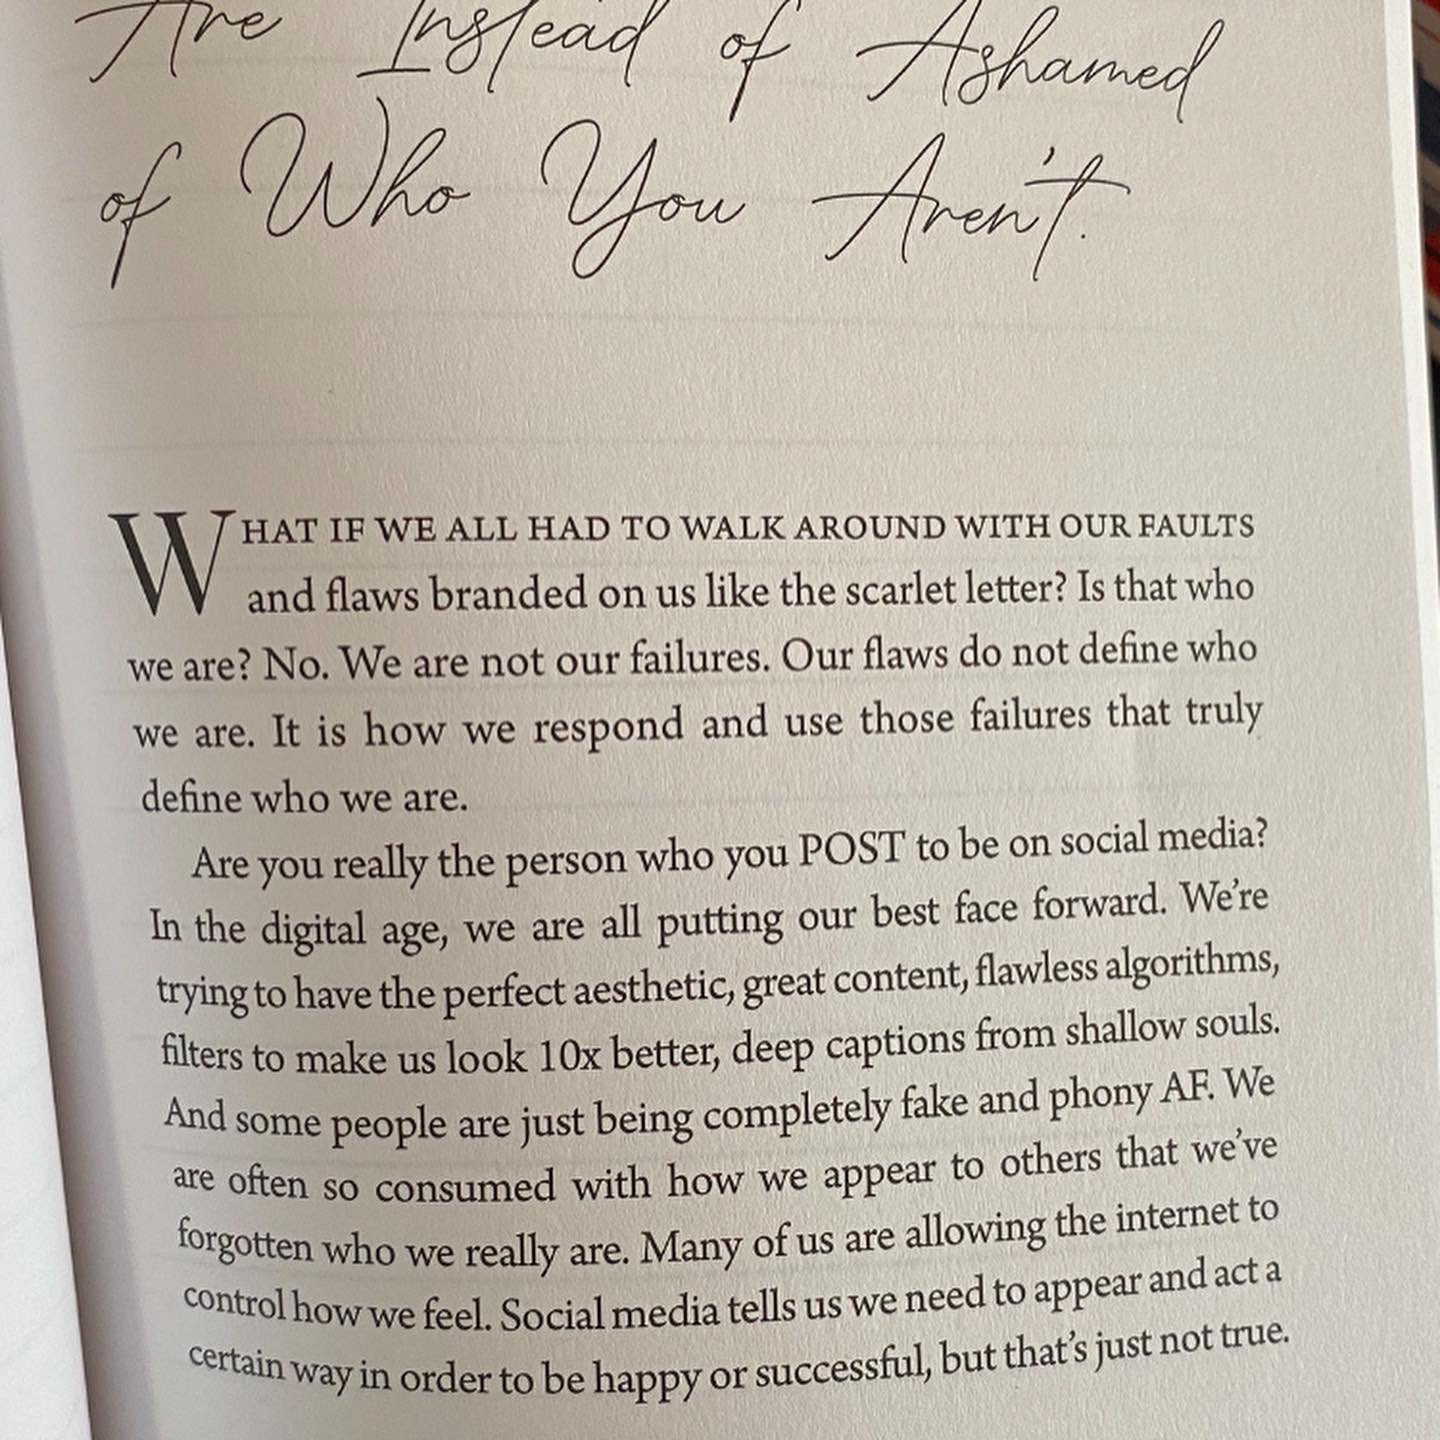 Are Instead of Ashamed
of Who You Aren't.
WHAT IF WE ALL HAD TO WALK AROUND WITH OUR FAULTS
and flaws branded on us like the scarlet letter? Is that who
we are? No. We are not our failures. Our flaws do not define who
we are. It is how we respond and use those failures that truly
define who we are.
Are you really the person who you POST to be on social media?
In the digital age, we are all putting our best face forward. We're
trying to have the perfect aesthetic, great content, flawless algorithms,
filters to make us look 10x better, deep captions from shallow souls.
And some people are just being completely fake and phony AF. We
are often so consumed with how we appear to others that we've
forgotten who we really are. Many of us are allowing the internet to
control how we feel. Social media tells us we need to appear and act a
certain way in order to be happy or successful, but that's just not true.